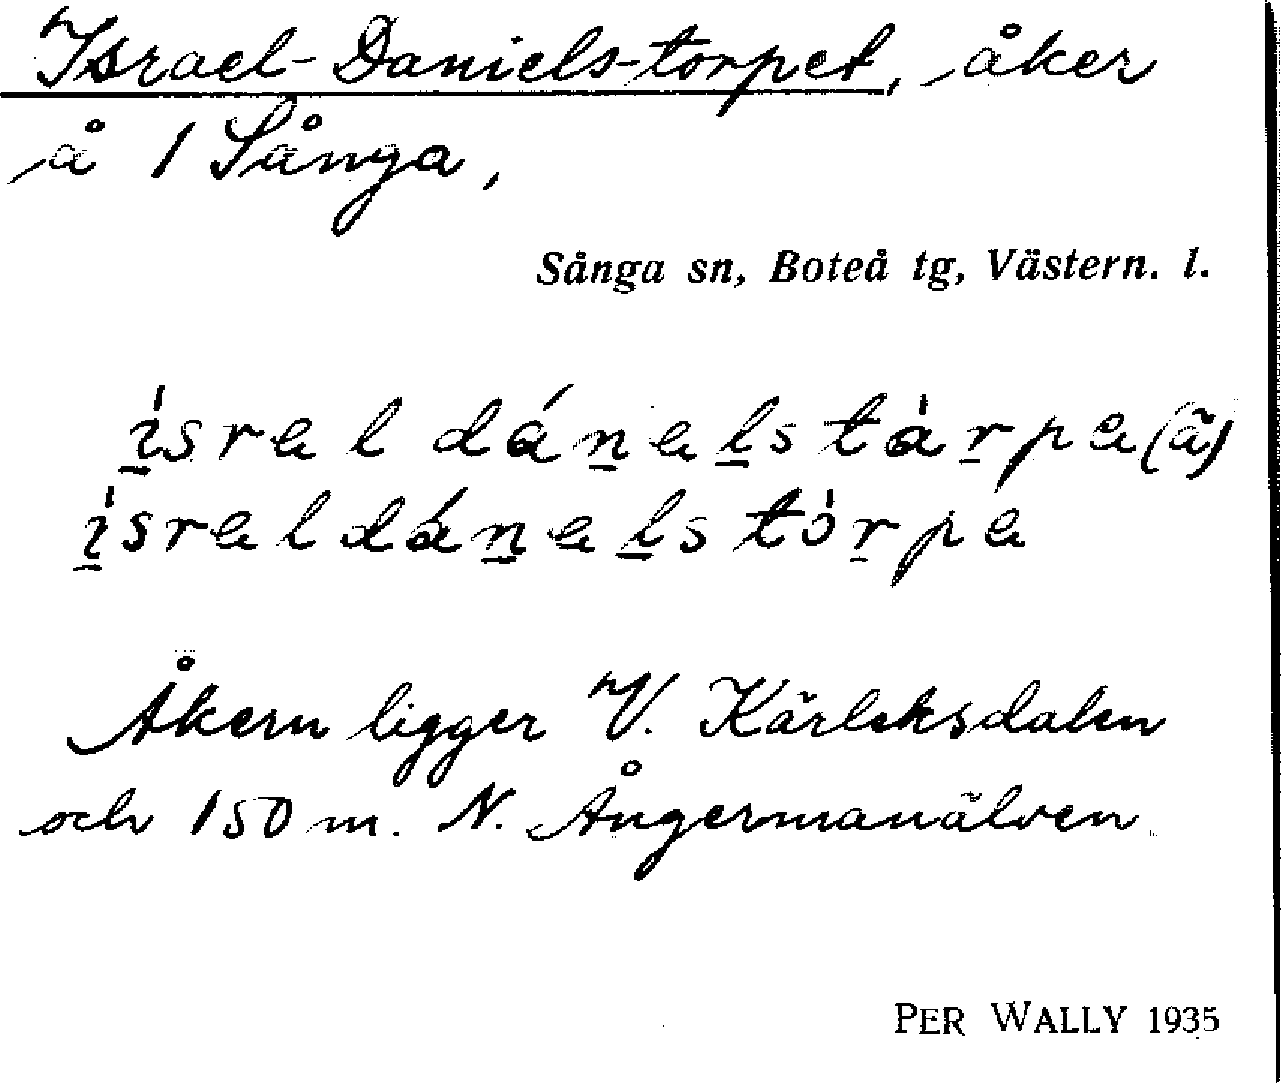 Israel-Daniels-torpet, åker
å 1 Sånga,
Sånga sn, Boteå tg, Västern. l.
Åkern ligger V. Kärleksdalen
och 150 m. N. Ångermanälven
PER WALLY 1935